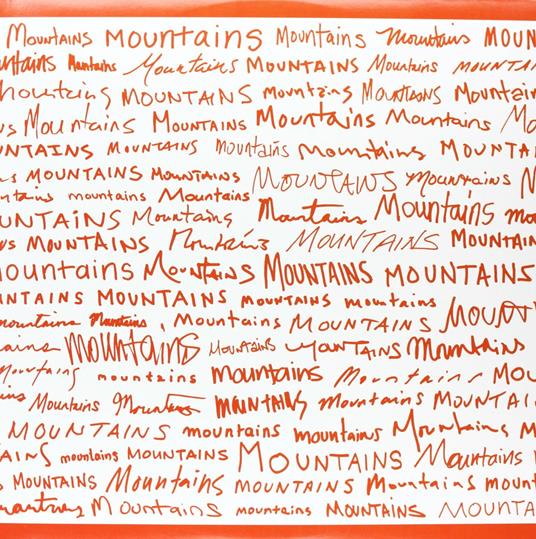 Mountains Mountains Mountains Mountains
Mountains Mountains Mountains Mountains
Mountains Mountains Mountains Mountains
Mountains Mountains Mountains Mountains
Mountains Mountains Mountains
Mountains Mountains Mountains Mountains
Mountains Mountains Mountains
Mountains Mountains Mountains Mountains
Mountains Mountains Mountains
Mountains Mountains Mountains
Mountains Mountains Mountains Mountains
Mountains mountains mountains
Mountains Mountains Mountains
Mountains Mountains Mountains Mountains
mountains mountains Mountains
Mountains Mountains Mountains mountains
Mountains mountains mountains Mountains
mountains Mountains Mountains Mountains
Mountains Mountains Mountains Mountains
Mountains mountains Mountains